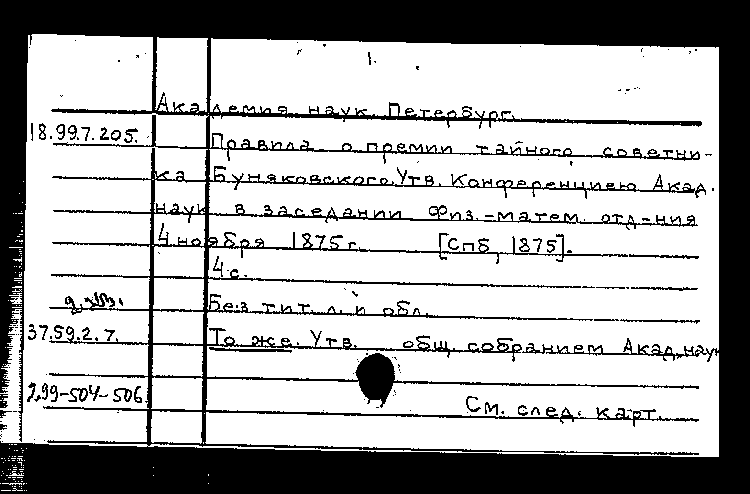 1.
Академия наук. Петербург.
18.99.7.205. Правила о премии тайного советни-
ка Буняковского. Утв. Конференциею Акад.
наук в заседании физ.-матем. отд-ния
4 ноября 1875 г. [Спб, 1875].
4 с.
Без тит. л. и обл.
37.59.2.7. То же. Утв. общ. собранием Акад. наук
299-504-506 См. след. карт.